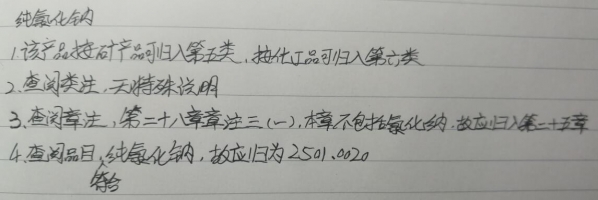 纯氯化钠
1.该产品按矿产品可归入第五类,按化工品可归入第六类
2.查阅类注,无特殊说明
3.查阅章注,第二十八章章注三(一),本章不包括氯化钠.故应归入第二十五章
4.查阅品目,符合纯氯化钠,故应归为2501.0020